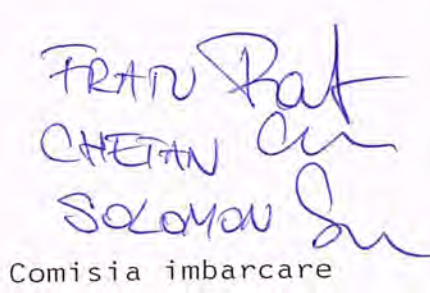 FRATU
CHETAN
SOLOMON
Comisia imbarcare